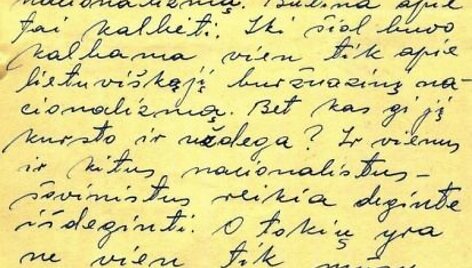 nacionalizmą. Būtina apie
tai kalbėti. Iki šiol buvo
kalbama vien tik apie
lietuviškąjį buržuazinį na-
cionalizmą. Bet kas gi jį
kursto ir uždega? Ir vienus
ir kitus nacionalistus-
šovinistus reikia deginte
išdeginti. O tokių yra
ne vien tik